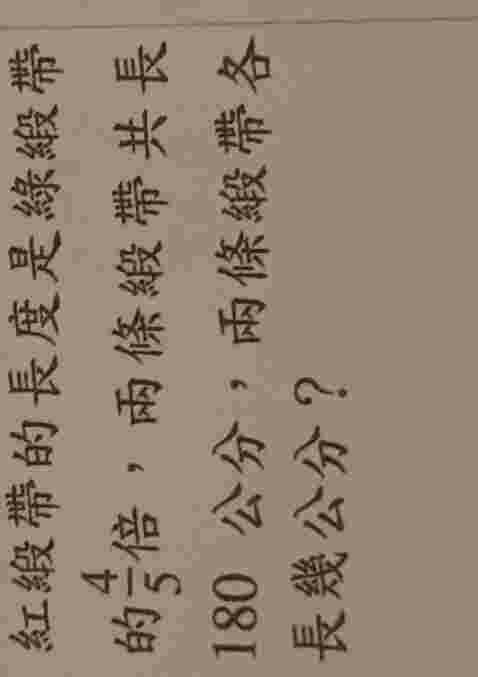 紅緞帶的長度是綠緞帶
的4/5倍，兩條緞帶共長
180 公分，兩條緞帶各
長幾公分？